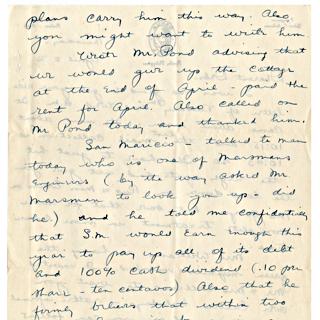 plans carry him this way. Also,
you might want to write him
Wrote Mr. Pond advising that
we would give up the cottage
at the end of April - paid the
rent for April. Also called on
Mr Pond today and thanked him.
San Maricio - talked to man
today who is one of Marsmans
Engineers (by the way asked Mr
Marsman to look you up - did
he) and he told me confidentially
that S.M. would earn enough this
year to pay up all of its debt
and 100% cash dividend (.10 per
share - ten centavos) Also that he
firmly that within two